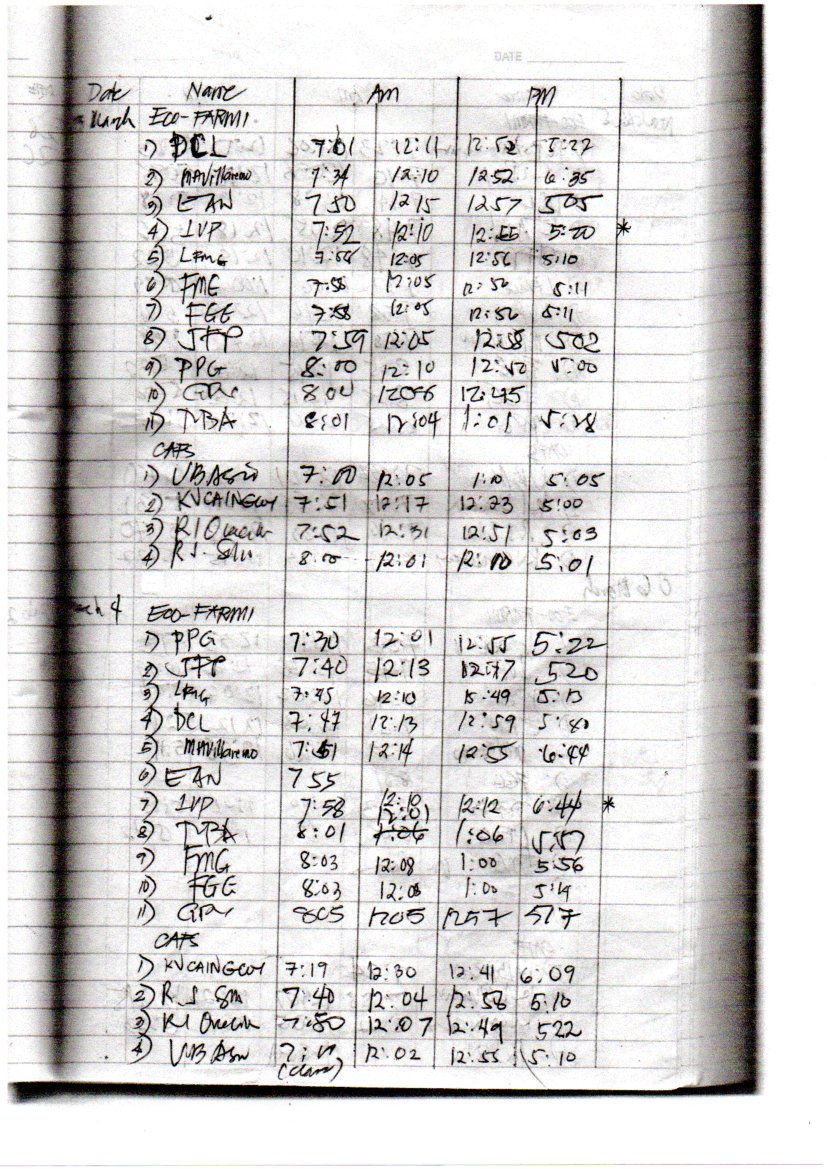 DATE
Date Name Am PM
March ECO-FARMI
1) DCL 7:01 12:11 12:52 5:27
2) MAVillareno 7:34 12:10 12:52 6:35
3) EAN 7 50 12 15 12 57 505
4) IVP 7:52 12:10 12:55 5:20 *
5) LFMG 7:56 12:05 12:56 5:10
6) FMG 7:58 12:05 12:56 5:11
7) FGE 7:58 12:05 12:56 5:11
8) JFP 7:59 12:05 12:58 502
9) PPG 8:00 12:10 12:50 5:00
10) GPV 8 00 1206 12:45
11) TMBA 8:01 12:04 1:01 5:28
CAFS
1) VB Asio 7:00 12:05 1:00 5:05
2) KVCAINGCOY 7:51 12:17 12:23 5:00
3) RI 7:52 12:31 12:51 5:03
4) R J. 8:00 12:01 12:10 5:01
March 4 ECO-FARMI
1) PPG 7:30 12:01 12:55 5:22
2) JFP 7:40 12:13 12:47 520
3) LFMG 7:45 12:10 12:49 5:13
4) DCL 7:47 12:13 12:59 5:40
5) MAVillareno 7:51 12:14 12:55 6:44
6) EAN 7 55
7) IVP 7:58 12:10 12:12 6:44 *
8) TMBA 8:01 12:01 1:06 5:57
9) FMG 8:03 12:08 1:00 5:56
10) FGE 8:03 12:08 1:00 5:14
11) GPV 805 1205 1257 517
CAFS
1) KVCAINGCOY 7:19 12:30 12:41 6:09
2) R J 7:40 12:04 12:58 5:10
3) RI 7:50 12:07 12:49 522
4) VB Asio 12:02 12:55 5:10
(class)